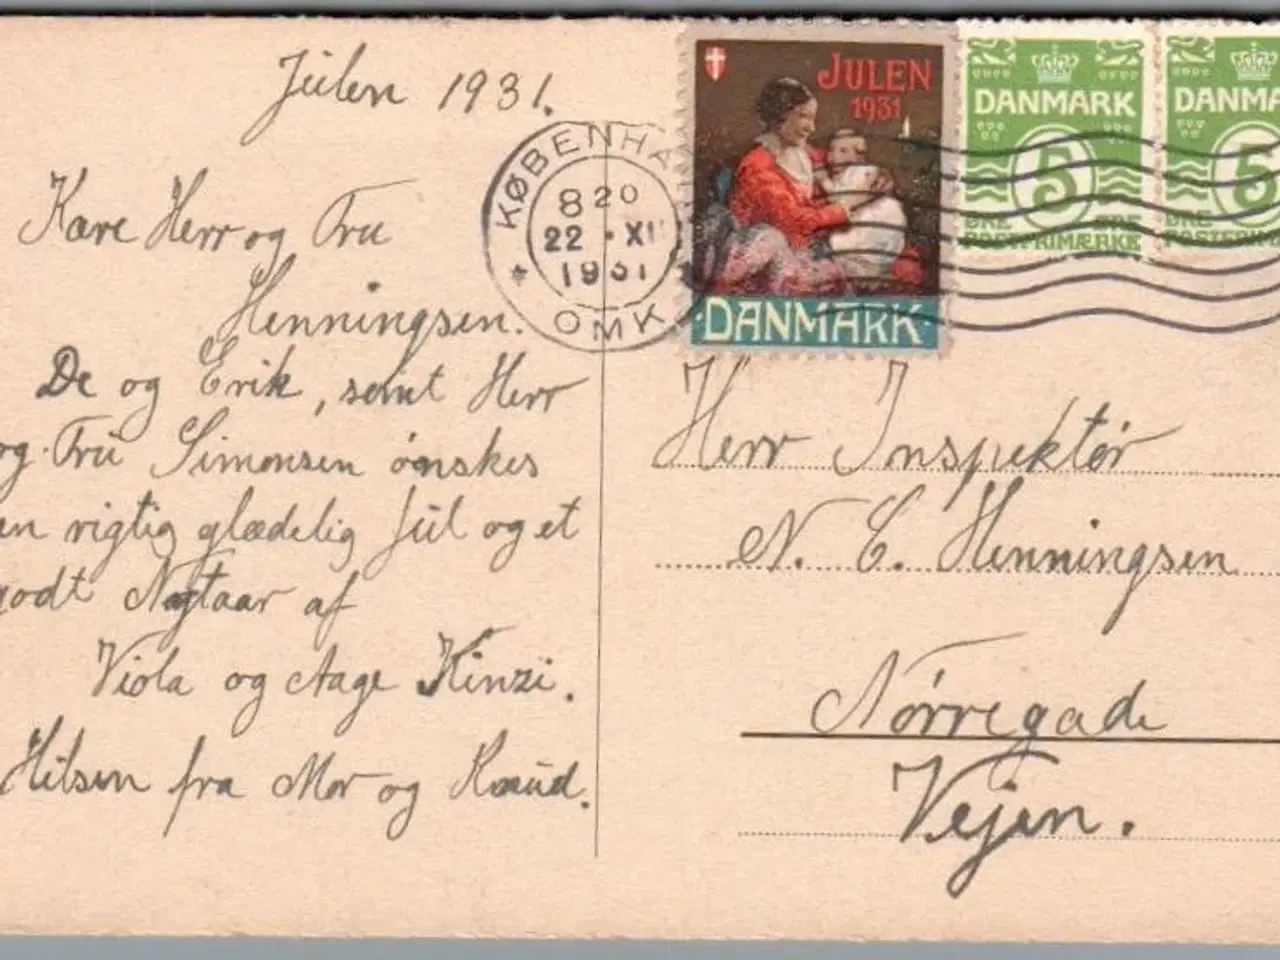 Julen 1931.
Kære Herr og Fru
Henningsen.
De og Erik, samt Herr
og Fru Simonsen ønskes
en rigtig glædelig Jul og et
godt Nytaar af
Viola og Aage Kinzi.
Hilsen fra Mor og Knud.
KØBENHA
OMK
8 20
22 · XII
1931
JULEN
1931
DANMARK
DANMARK
5
ØRE ØRE
POSTFRIMÆRKE
DANMA
5
ØRE
POSTFRIM
Herr Inspektør
N. C. Henningsen
Nørregade
Vejen.